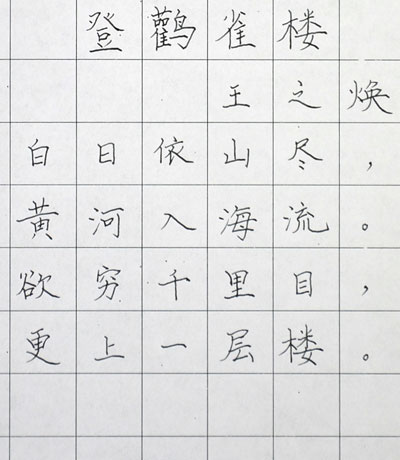 登鹳雀楼
王之焕
白日依山尽，
黄河入海流。
欲穷千里目，
更上一层楼。